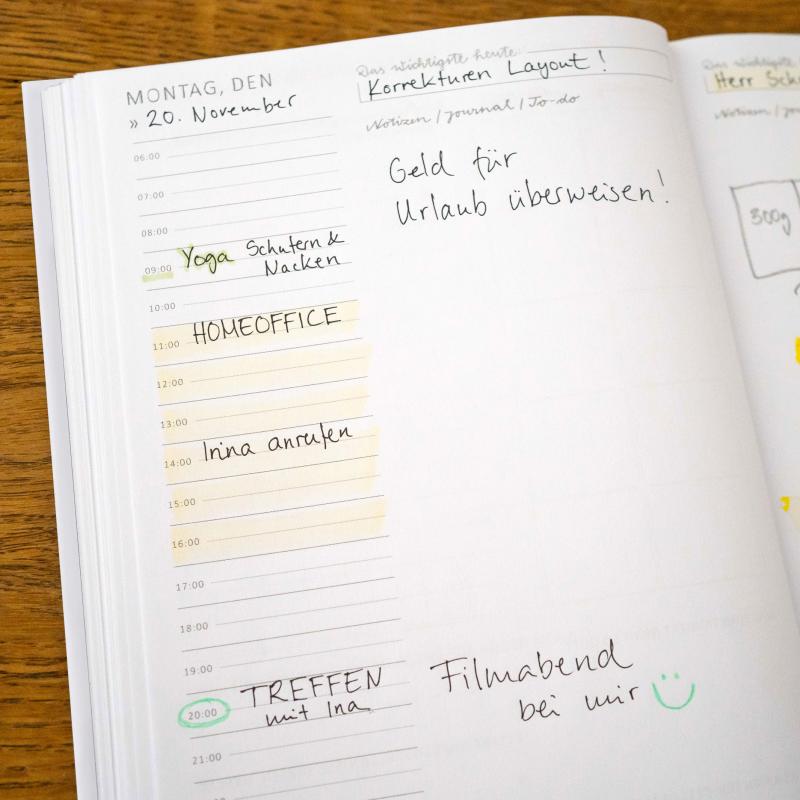 MONTAG, DEN
» 20. November
06:00
07:00
08:00
09:00 Yoga Schultern &
Nacken
10:00
11:00 HOMEOFFICE
12:00
13:00
14:00 Irina anrufen
15:00
16:00
17:00
18:00
19:00
20:00 TREFFEN
mit Ina
21:00
Das wichtigste heute:
Korrekturen Layout!
Notizen / Journal / To-do
Geld für
Urlaub überweisen!
Filmabend
bei mir
Das wichtigste
Herr
Notizen
300g